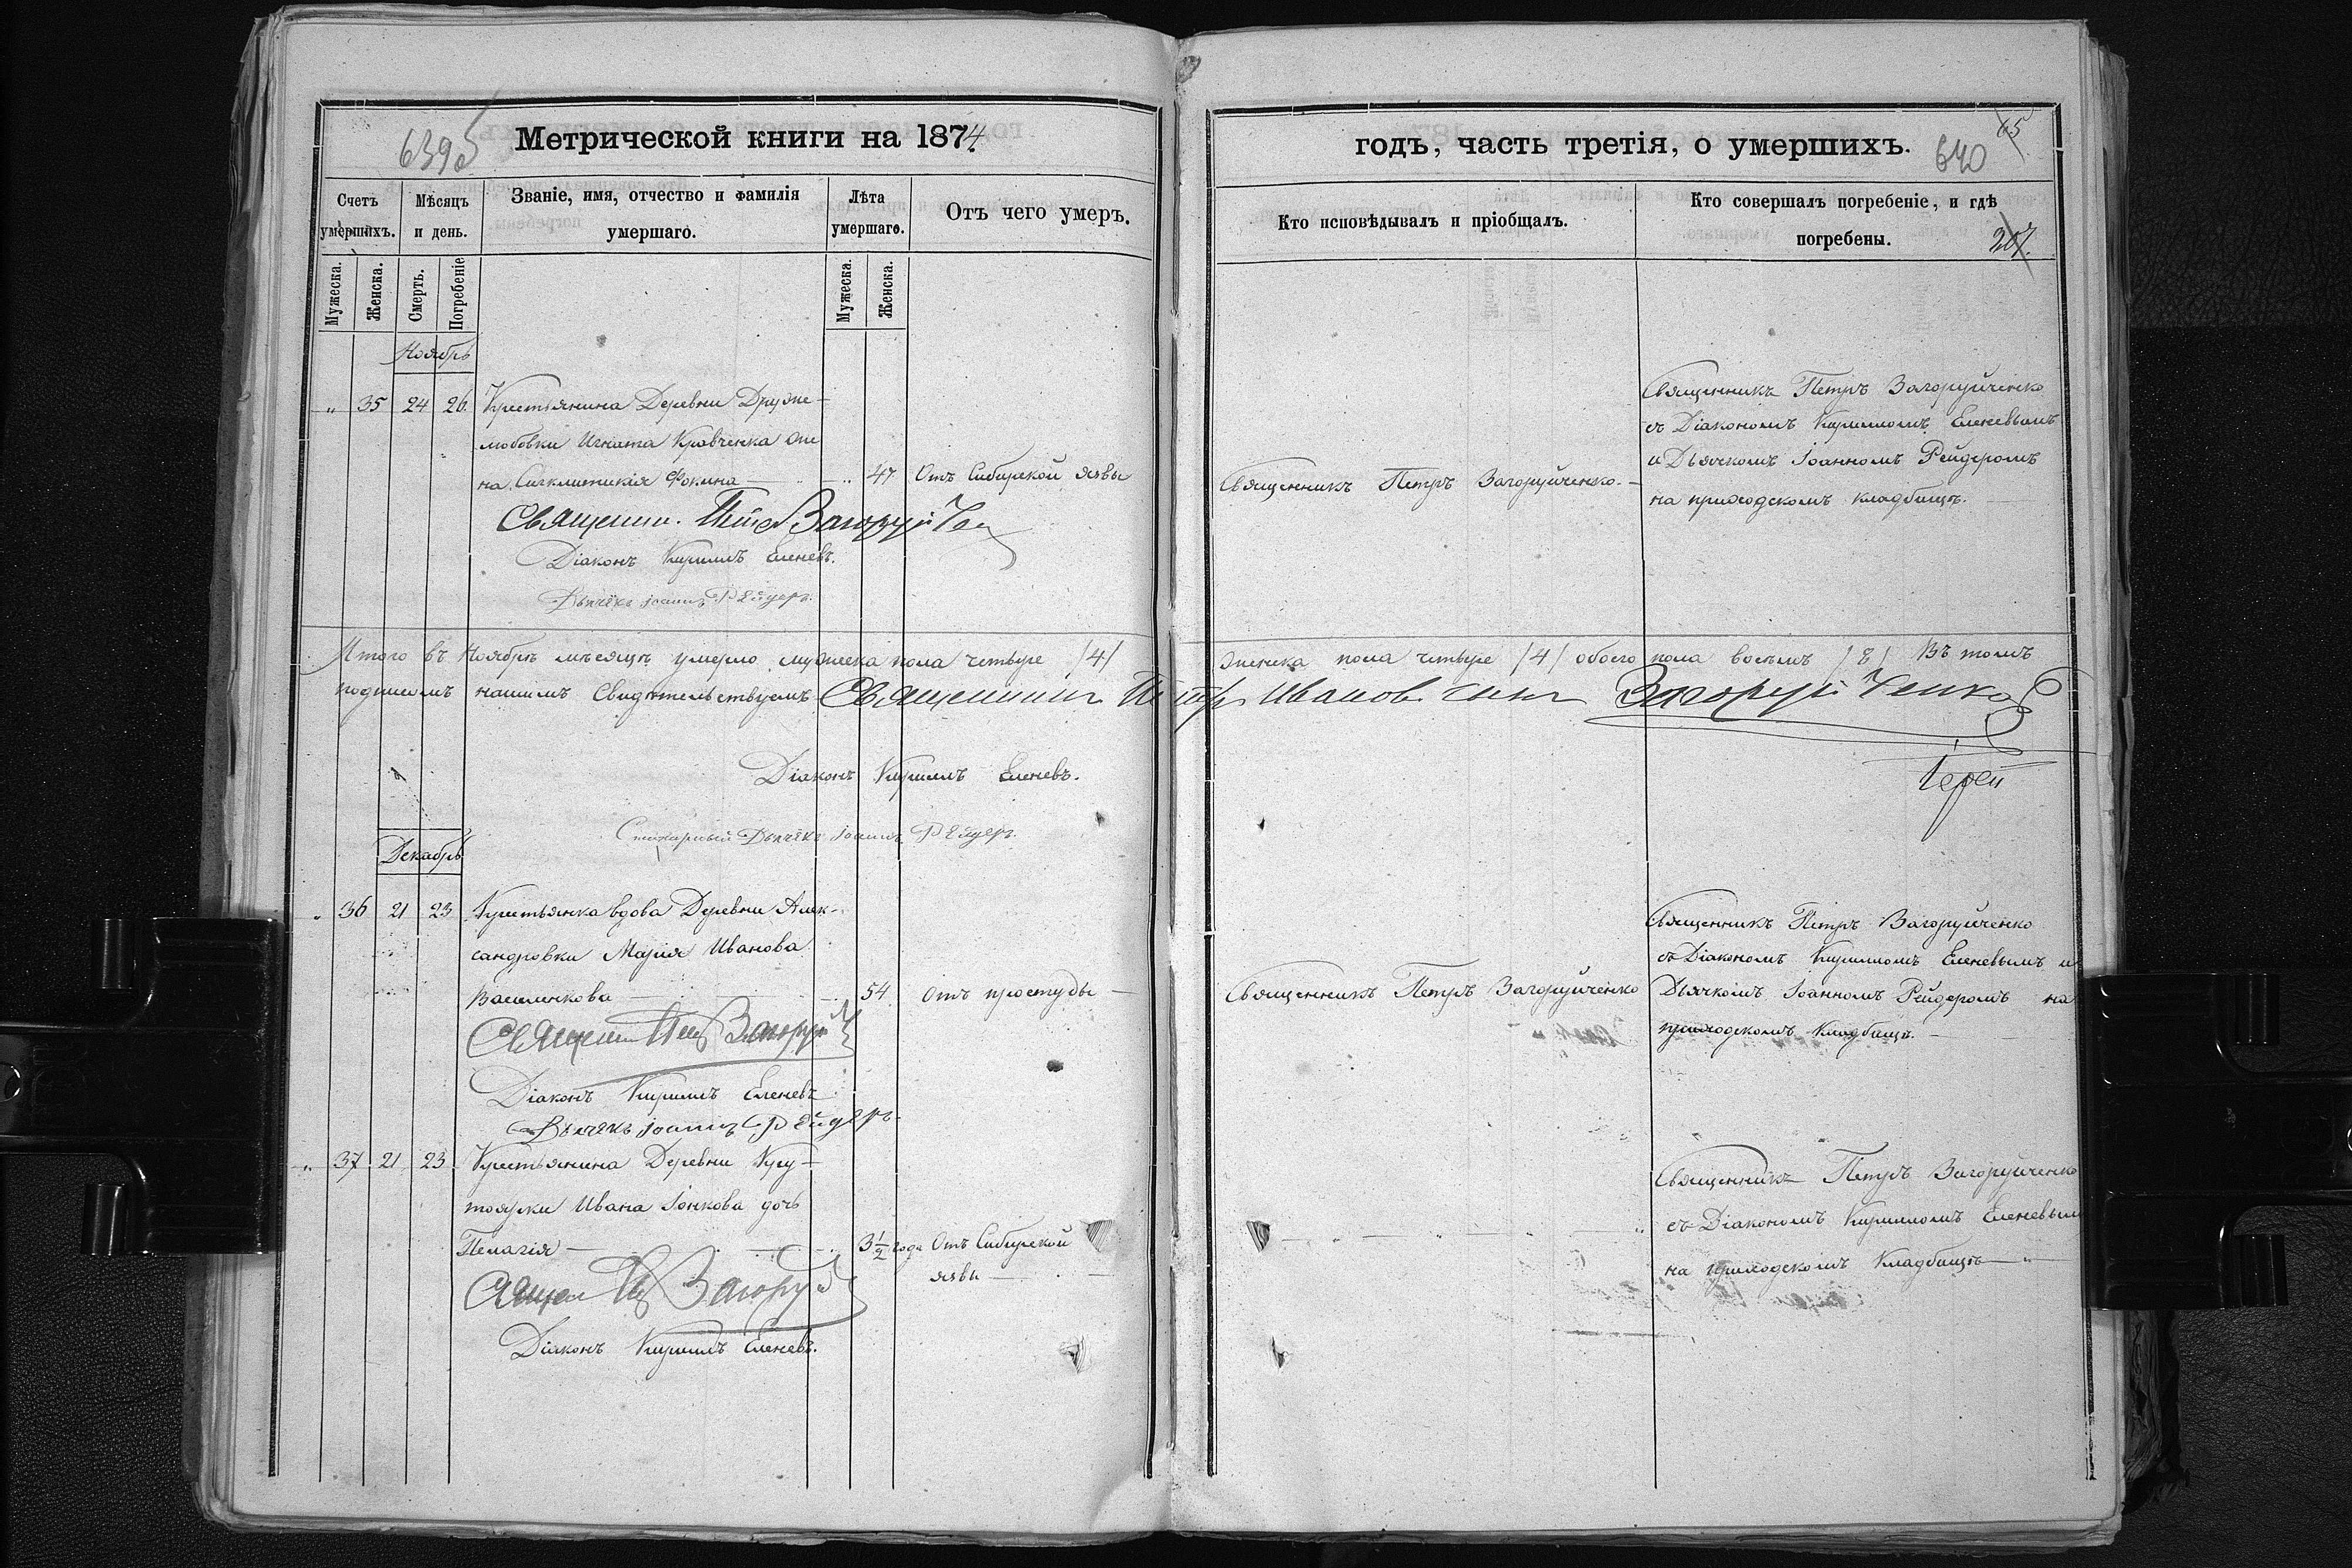 639об
Метрической книги на 1874
Счетъ умершихъ.
Мѣсяцъ и день.
Званіе, имя, отчество и фамилія умершаго.
Лѣта умершаго.
Отъ чего умеръ.
Мужеска.
Женска.
Смерть.
Погребеніе
Мужеска.
Женска.
Ноябрь
„ 35 24 26. Крестьянина Деревни Друже-
любовки Игната Кравченка же
на Сигклитикія Фокина — „ 47 Отъ Сибирской язвы
Священни. Петр Загоруйчен
Діаконъ Кириллъ Еленевъ.
Дьячекъ Іоаннъ Рейдеръ.
Итого въ Ноябрѣ мѣсяцѣ умерло мужеска пола четыре /4/
подписомъ нашимъ свидѣтельствуемъ Священник Петръ
Діаконъ Кириллъ Еленевъ.
Стихарный Дьячёкъ Іоаннъ Рейдеръ.
Декабрь
„ 36 21 23 Крестьянка вдова Деревни Алек-
сандровки Марія Иванова
Василенкова — 54 Отъ простуды —
Священ Пет Загоруй
Діаконъ Кириллъ Еленевъ
Дьячекъ Іоаннъ Рейдеръ
„ 37 21 23 Крестьянина Деревни Кру-
тоярки Ивана Іонкова дочь
Пелагія — 3½ года Отъ Сибирской
язвы —
Священ Пе Загоруй
Діаконъ Кириллъ Еленевъ.
годъ, часть третія, о умершихъ.
65
640
Кто исповѣдывалъ и пріобщалъ.
Кто совершалъ погребеніе, и гдѣ
погребены.
207.
Священникъ Петръ Загоруйченко. —
Священникъ Петръ Загоруйченко
съ Діакономъ Кирилломъ Еленевымъ
и Дьячкомъ Іоанномъ Рейдеромъ
на приходскомъ кладбищѣ. —
женска пола четыре /4/ обоего пола восемь /8/ Въ томъ
Иванов сынъ Загоруйченко
Іерей
Священникъ Петръ Загоруйченко
Священникъ Петръ Загоруйченко
съ Діакономъ Кирилломъ Еленевымъ и
Дьячкомъ Іоанномъ Рейдеромъ на
приходскомъ Кладбищѣ. —
Священникъ Петръ Загоруйченко
съ Діакономъ Кирилломъ Еленевым
на приходскомъ Кладбищѣ — „ —